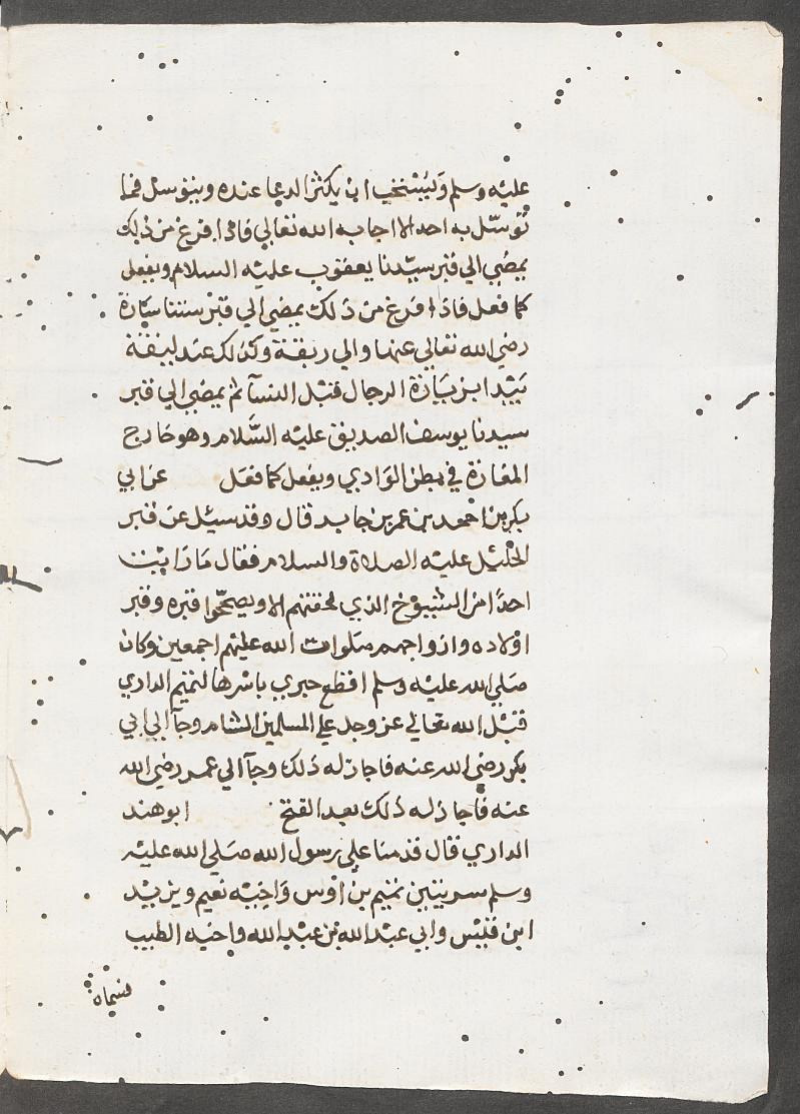 عليه وسلم ويستحب ان يكثر الدعا عنده ويتوسل فما
توسل به احد الا اجابه الله تعالي فاذا فرغ من ذلك
يمضي الي قبر سيدنا يعقوب عليه السلام ويفعل
كما فعل فاذا فرغ من ذلك يمضي الي قبر ستنا سارة
رضي الله تعالي عنها والي ربقة وكذلك عند ليقة
يبدا بزيارة الرجال قبل النسآ ثم يمضي الي قبر
سيدنا يوسف الصديق عليه السلام وهو خارج
المغارة في بطن الوادي ويفعل كما فعل عن ابي
بكر بن احمد بن عمر بن جابر قال وقد سيل عن قبر
الخليل عليه الصلاة والسلام فقال ما رايت
احدا من الشيوخ الذي لحقتهم الا ويصححوا قبره وقبر
اولاده وازواجهم صلوات الله عليهم اجمعين وكان
صلي الله عليه وسلم اقطع حبري باسرها لتميم الداري
قبل الله تعالي عز وجل علي المسلمين الشام وجآ الي ابي
بكر رضي الله عنه فاجاز له ذلك وجآ الي عمر رضي الله
عنه فاجاز له ذلك بعد الفتح ابو هند
الداري قال قدمنا علي رسول الله صلي الله عليه
وسلم تميم بن اوس واخيه نعيم ويزيد
ابن قيس وابي عبد الله بن عبد الله واخيه الطيب
فسماه